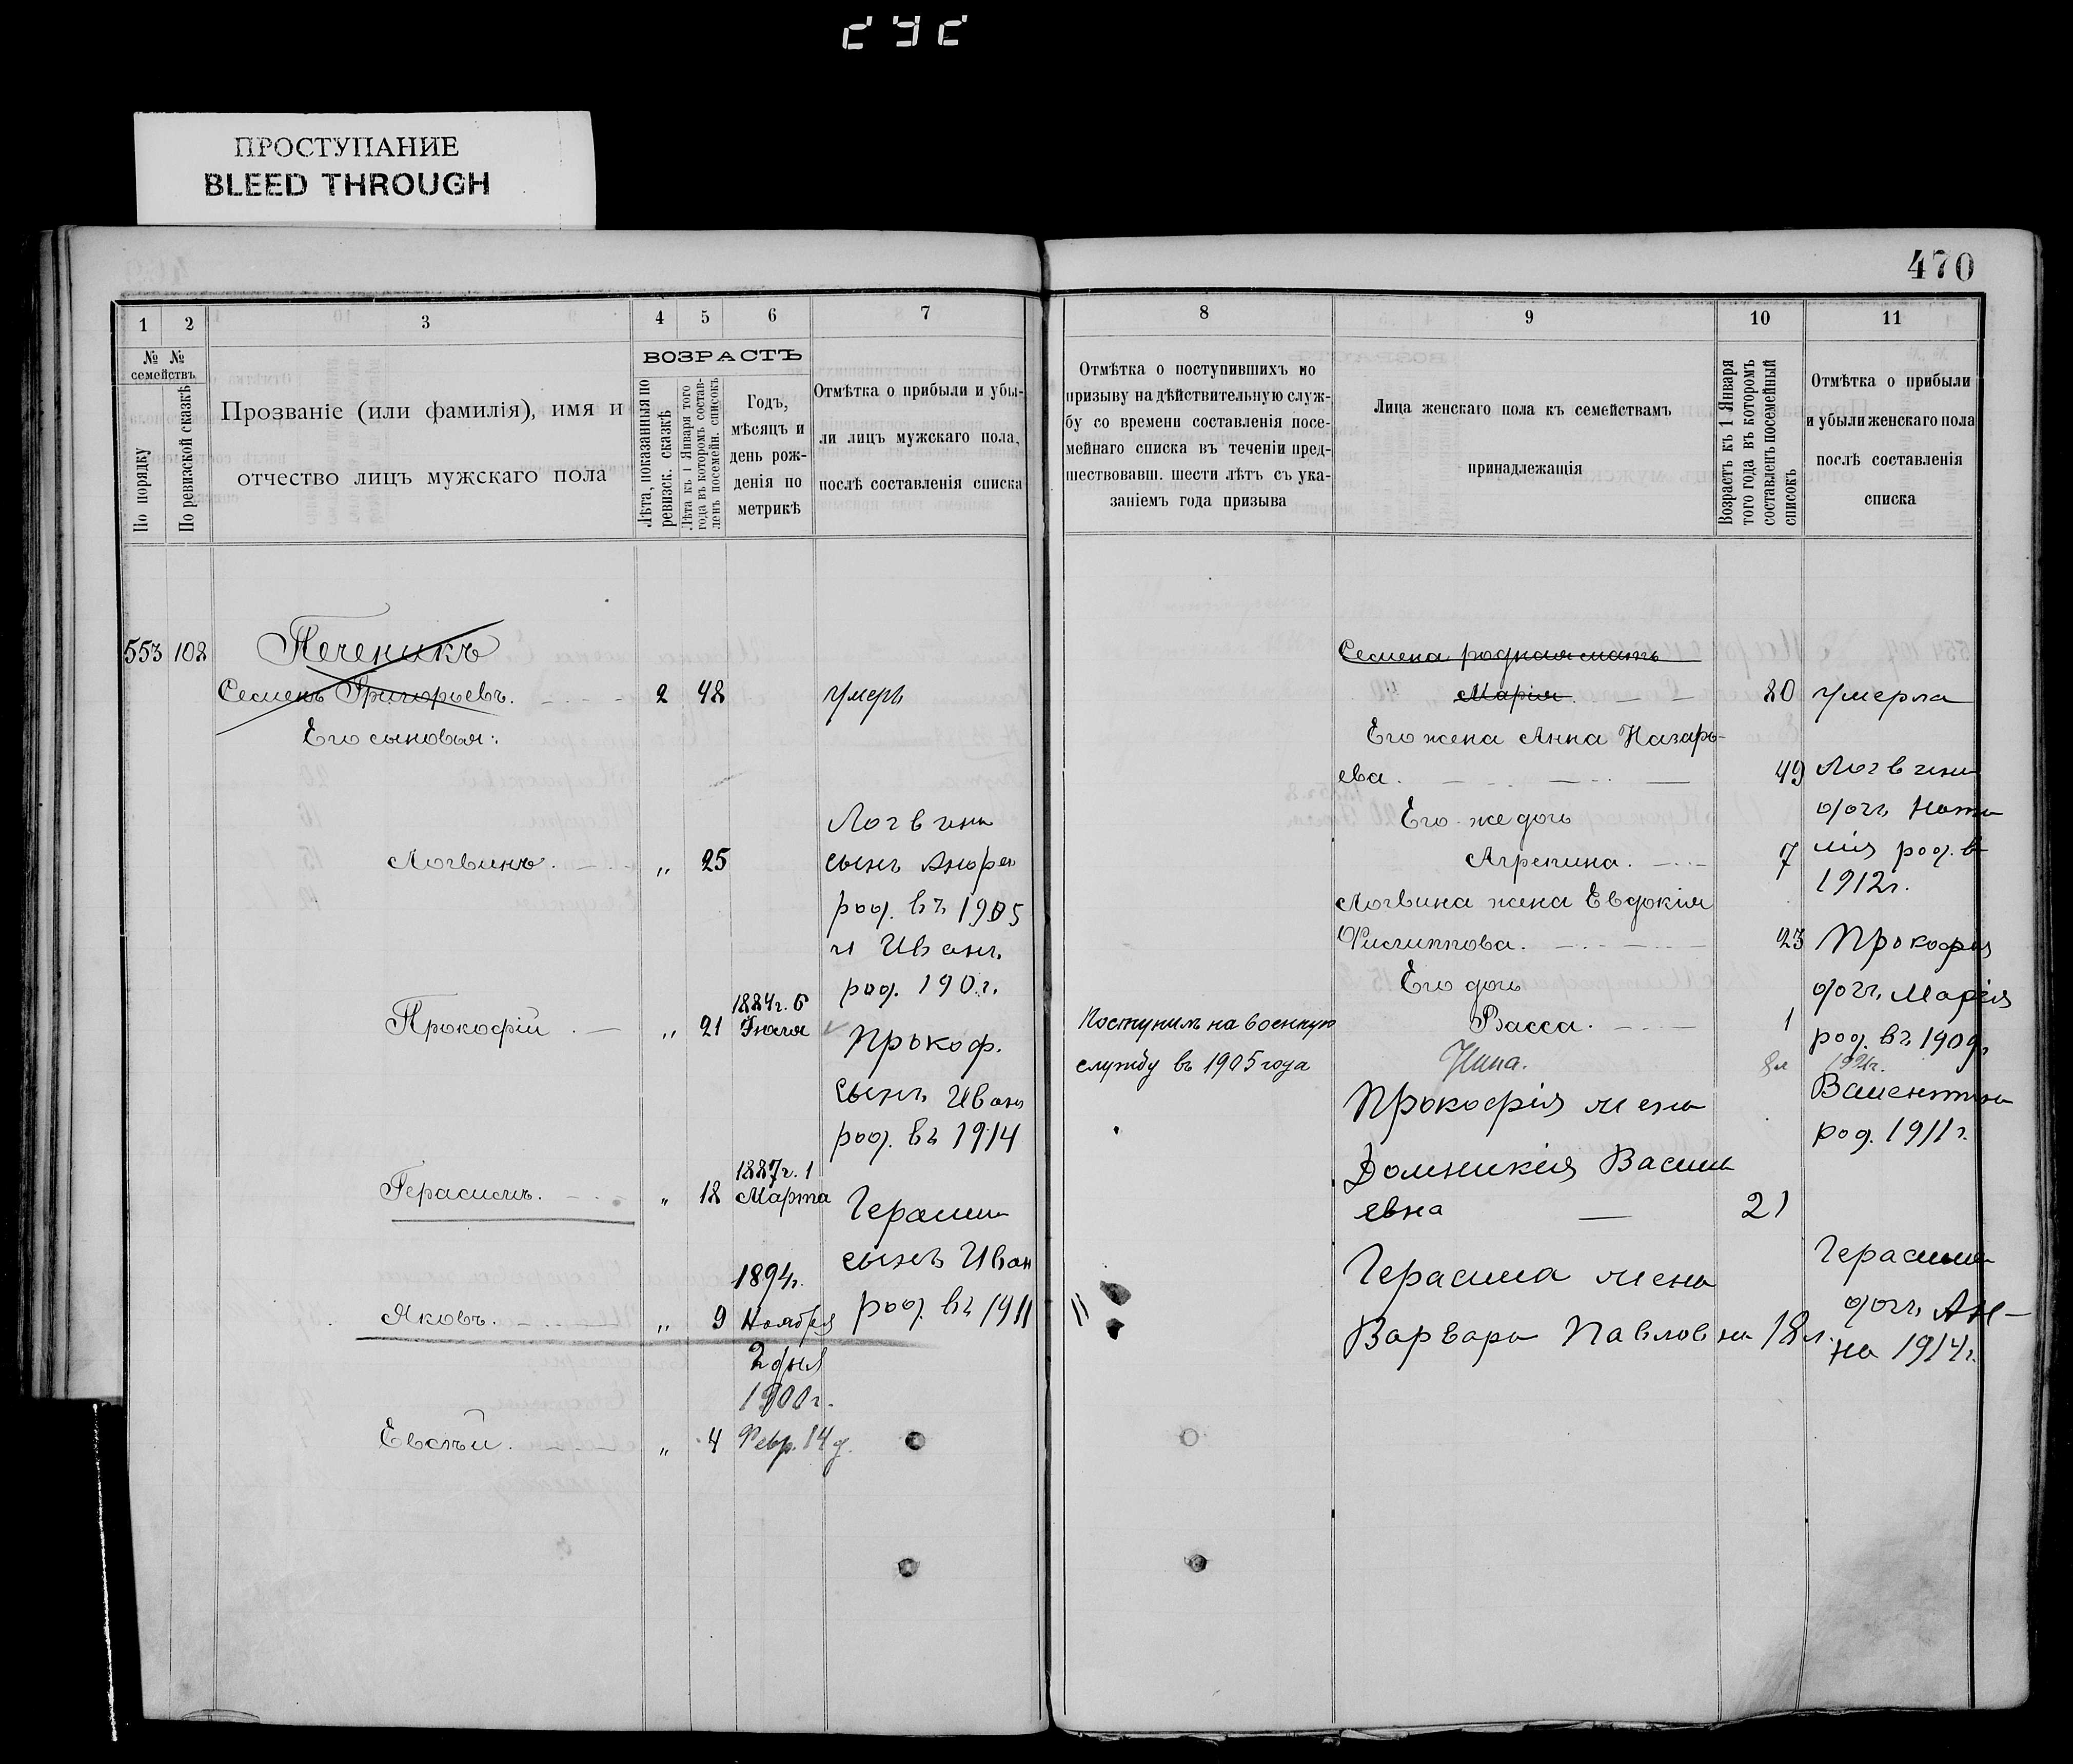 ПРОСТУПАНИЕ
BLEED THROUGH
470
1 2 3 4 5 6 7
№ № семействъ
По порядку
По ревизской сказкѣ
Прозваніе (или фамилія), имя и
отчество лицъ мужскаго пола
ВОЗРАСТЪ
Лѣта, показанныя по
ревизск. сказкѣ
Лѣта къ 1 Января того
года въ которомъ состав-
ленъ посемейн. списокъ
Годъ,
мѣсяцъ и
день рож-
денія по
метрикѣ
Отмѣтка о прибыли и убы-
ли лицъ мужскаго пола,
послѣ составленія списка
553 102 Печеникъ
Семенъ Григорьевъ. 2 48 умеръ
Его сыновья:
Логвина
Логвинъ. „ 25 сынъ Андрей
род. въ 1905
и Иванъ
род. 190 г.
1884г. 6
Прокофій „ 21 Іюля
Прокоф.
сынъ Иванъ
род. въ 1914
1887г. 1
Герасимъ. „ 18 Марта
Герасима
сынъ Иван
1894г.
Яковъ. „ 9 Ноября род. въ 1911
2 дня
1900г.
Евсѣй. „ 4 Февр. 14 д.
8 9 10 11
Отмѣтка о поступившихъ по
призыву на дѣйствительную служ-
бу со времени составленія посе-
мейнаго списка въ теченіи пред-
шествовавш. шести лѣтъ съ ука-
заніемъ года призыва
Лица женскаго пола къ семействамъ
принадлежащія
Возрастъ къ 1 Января
того года въ которомъ
составленъ посемейный
списокъ
Отмѣтка о прибыли
и убыли женскаго пола
послѣ составленія
списка
Семена родная мать
Марія. 80 умерла
Его жена Анна Назарь-
ева. 49 Логвина
Его же дочь дочь Ната
Агрепина. 7 лія род. в
1912г.
Логвина жена Евдокія
Филиппова. 23 Прокофія
Его дочь дочь Марія
Поступилъ на военную Васса. 1 род. въ 1909г
службу въ 1905 года Нина. 8м
Прокофія жена Валентина
род. 1911 г.
Домникія Васил
евна 21
Герасима жена Герасима
дочь Ан-
Варвара Павловна 18 л. на 1914г.